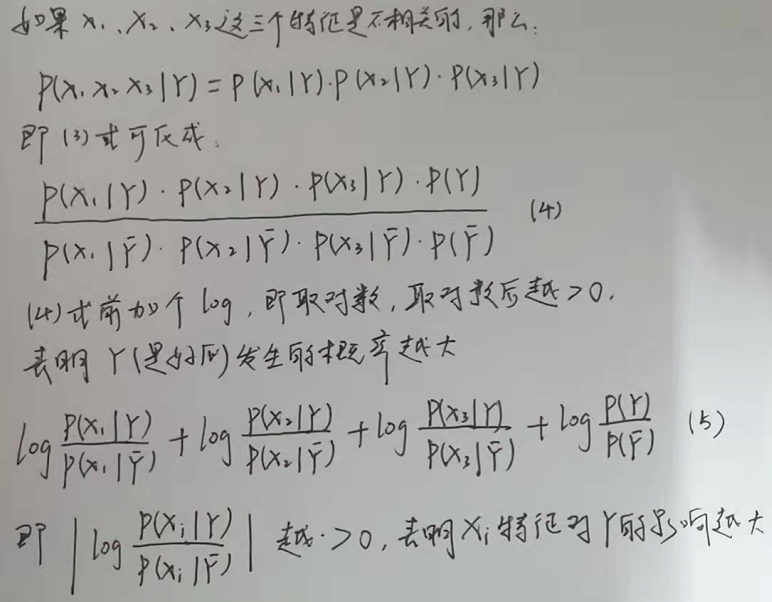 如果 x₁、x₂、x₃这三个特征是不相关的,那么:
P(x₁ x₂ x₃|Y) = P(x₁|Y)·P(x₂|Y)·P(x₃|Y)
即 (3)式可 成:
P(x₁|Y)·P(x₂|Y)·P(x₃|Y)·P(Y)
P(x₁|Ȳ)·P(x₂|Ȳ)·P(x₃|Ȳ)·P(Ȳ) (4)
(4)式前加个 log,即取对数,取对数后越>0.
表明 Y(是 )发生的概率越大
log P(x₁|Y)/P(x₁|Ȳ) + log P(x₂|Y)/P(x₂|Ȳ) + log P(x₃|Y)/P(x₃|Ȳ) + log P(Y)/P(Ȳ) (5)
即 |log P(xᵢ|Y)/P(xᵢ|Ȳ)| 越>0,表明Xᵢ特征对Y的影响越大